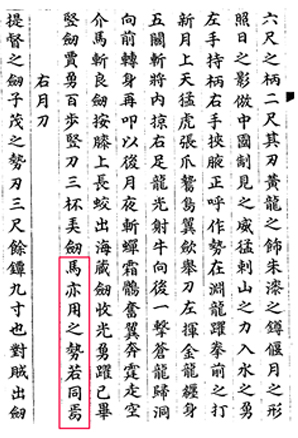 六尺之柄二尺其刃黃龍之飾朱漆之鐏偃月之形
照日之影倣中國制見之威猛刺山之力入水之勇
左手持柄右手挾腋正呼作勢在淵龍躍拳前之打
新月上天猛虎張爪鷙鳥翼歛舉刀左揮金龍纏身
五關斬將內掠右足龍光射牛向後一擊蒼龍歸洞
向前轉身再叩以後月夜斬蟬霜鶻奮翼奔霆走空
介馬斬良劒按膝上長蛟出海藏劒收光勇躍已畢
竪劒賈勇百步竪刀三杯美劒馬亦用之勢若同焉
右月刀
提督之劒子茂之勢刀三尺餘鐔九寸也對賊出劒